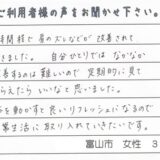 ご利用者様の声をお聞かせ下さい。
時間程で肩のズレなどが改善されて
きました。自分ひとりではなかなか
するのは難しいので定期的に見て
らえたらいいなと思いました。
を動かすと良いリフレッシュになるので
常生活に取り入れていきたいです。
富山市 女性 3